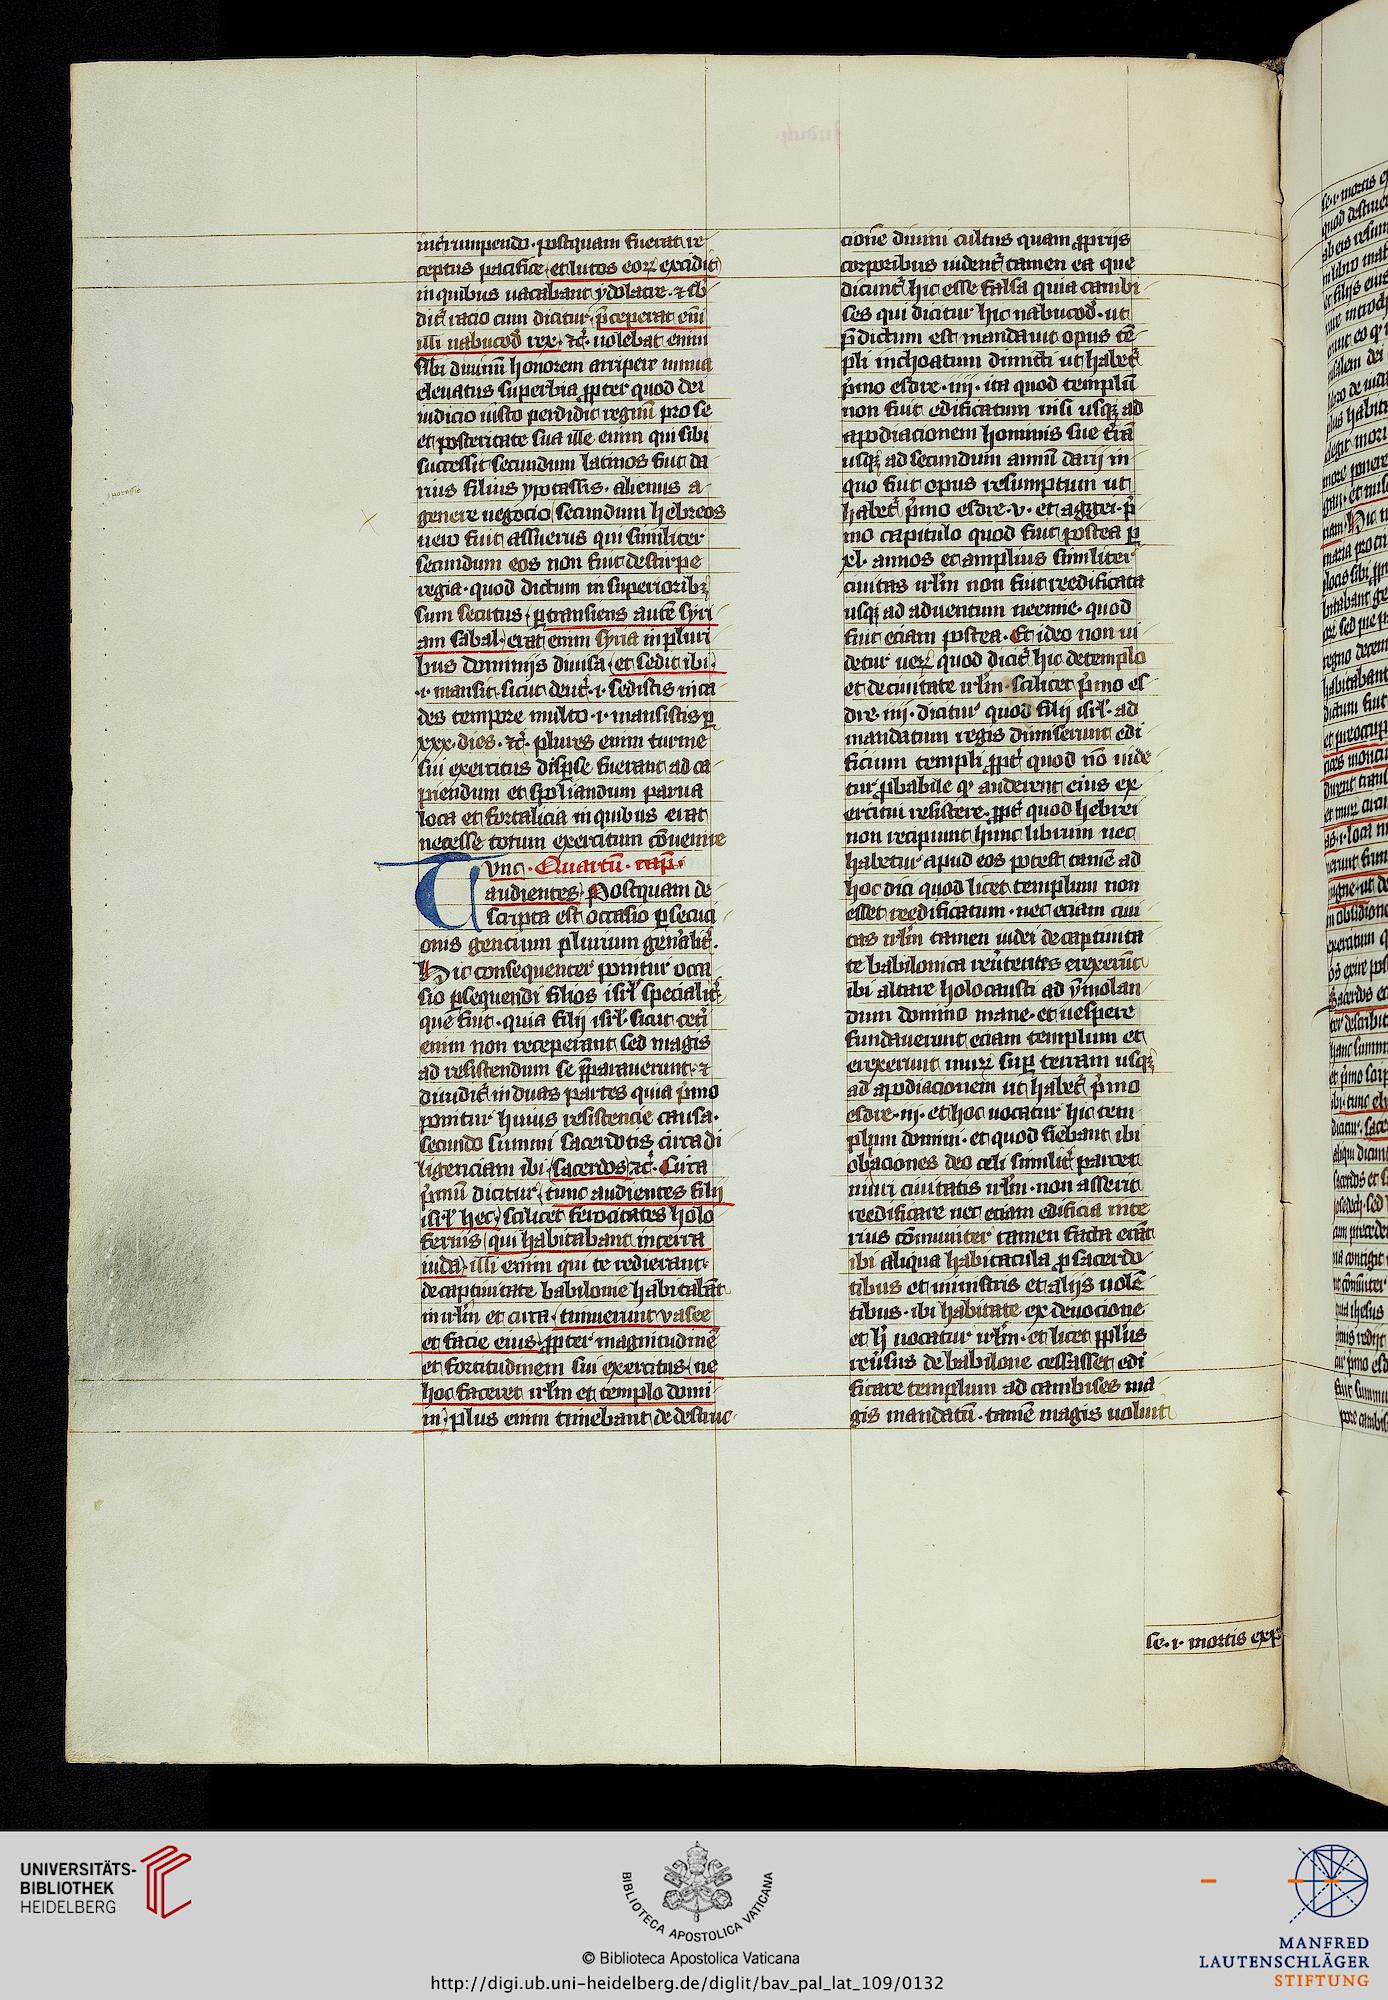 int̄rumpendo · postquam fuerat re
ceptus pacifice et lucos eoꝝ excidit
in quibus uacabant ydolatrie · ⁊ sb̄
dit̄ ratio cum dicitur p̄ceperat eni᷑
illi nabucod̄ rex · ⁊c̄ · uolebat enim
sibi diuinū honorem arripere nimia
eleuatus superbia ꝓpter quod dei
iudicio iusto perdidit regnū pro se
et posteritate sua ille enim qui sibi
successit secundum latinos fuit da
rius filius ypocassis · alienus a
genere negocio secundum hebreos
uero fuit assuerus qui similiter
secundum eos non fuit de stirpe
regia · quod dictum in superioribꝫ
sum secutus ꝑtransiens autē syri
am sabal erat enim syria in pluri
bus dominijs diuisa et sedit ibi ·
· i · mansit · sicut deut̄ · i · sedistis in ca
des tempore multo · i · mansistis ꝑ
xxx · dies · ⁊c̄ · plures enim turme
sui exercitus disꝑse fuerant ad ca
piendum et spoliandum parua
loca et fortalicia in quibus erat
necesse totum exercitum cōuenire
Tvnc · Quartū · cap̄ ·
audientes Postquam de
scripta est occasio ꝑsecuci
onis gencium plurium gen̄alit̄ ·
Hic consequenter ponitur occa
sio ꝑsequendi filios isrl̄ specialit̄
que fuit · quia filij isrl̄ · sicut cet̄i
enim non receperant sed magis
ad resistendum se p̄parauerunt · ⁊
diuidit̄ in duas partes quia p̄mo
ponitur huius resistencie causa ·
secundo summi sacerdotis circa di
ligenciam ibi sacerdos ⁊c̄ · Circa
p̄mū dicitur tunc audientes filij
isrl̄ hec scilicet ferocitates holo
fernis qui habitabant in terra
iuda illi enim qui te redierant
de captiuitate babilonie habitabāt
in irl̄m et circa timuerunt valee
et facie eius ꝓpter magnitudinē
et fortitudinem sui exercitus ne
hoc faceret irl̄m et templo domi
ni plus enim timebant de destruc
cione diuini cultus quam ꝓprijs
corporibus uident̄ tamen ea que
dicunt̄ hic esse falsa quia cambi
ses qui dicitur hic nabucod̄ · ut
p̄dictum est mandauit opus tē
pli inchoatum dimitti ut habet̄
p̄mo esdre · iiij · ita quod templū
non fuit edificatum nisi usqꝫ ad
apodiacionem hominis sue t̄rā
usqꝫ ad secundum annū darij in
quo fuit opus resumptum ut
habet̄ p̄mo esdre · v · et aggei · p̄
mo capitulo quod fuit postea ꝑ
xl · annos et amplius similiter
ciuitas irl̄m non fuit reedificata
usqꝫ ad aduentum neemie · quod
fuit eciam postea · Et ideo non ui
detur ueꝝ quod dicit̄ hic de templo
et de ciuitate irl̄m · scilicet p̄mo es
dre · iiij · dicitur quod filij isrl̄ · ad
mandatum regis dimiserunt edi
ficium templi ꝓpt̄ quod nō uide
tur ꝓbabile ꝙ auderent eius ex
ercitui resistere · ꝓpt̄ quod hebrei
non recipiunt hunc librum nec
habetur apud eos potest tamē ad
hoc dici quod licet templum non
esset reedificatum · nec eciam ciui
tas irl̄m tamen iudei de captiuita
te babilonica reūtentes erexerūt
ibi altare holocausti ad ȳmolan
dum domino mane · et uespere
fundauerunt eciam templum et
erexerunt muꝝ suꝑ terram usqꝫ
ad apodiacionem ut habet̄ p̄mo
esdre · iij · et hoc uocatur hic tem
plum domini · et quod fiebant ibi
oblaciones deo celi similit̄ parcet
muri ciuitatis irl̄m · non asserit
reedificare nec eciam edificia inte
rius cōmuniter tamen facta erāt
ibi aliqua habitacula ꝓ sacerdo
tibus et ministris et alijs uolē
tibus · ibi habitare ex deuocione
et h̄ uocatur irl̄m · et licet ppl̄us
reūsus de babilone cessasset edi
ficare templum ad cambises ma
gis mandatū · tamē magis uoluit
se · i · mortis exp̄
UNIVERSITÄTS-
BIBLIOTHEK
HEIDELBERG
BIBLIOTECA APOSTOLICA VATICANA
© Biblioteca Apostolica Vaticana
http://digi.ub.uni-heidelberg.de/diglit/bav_pal_lat_109/0132
MANFRED
LAUTENSCHLÄGER
STIFTUNG